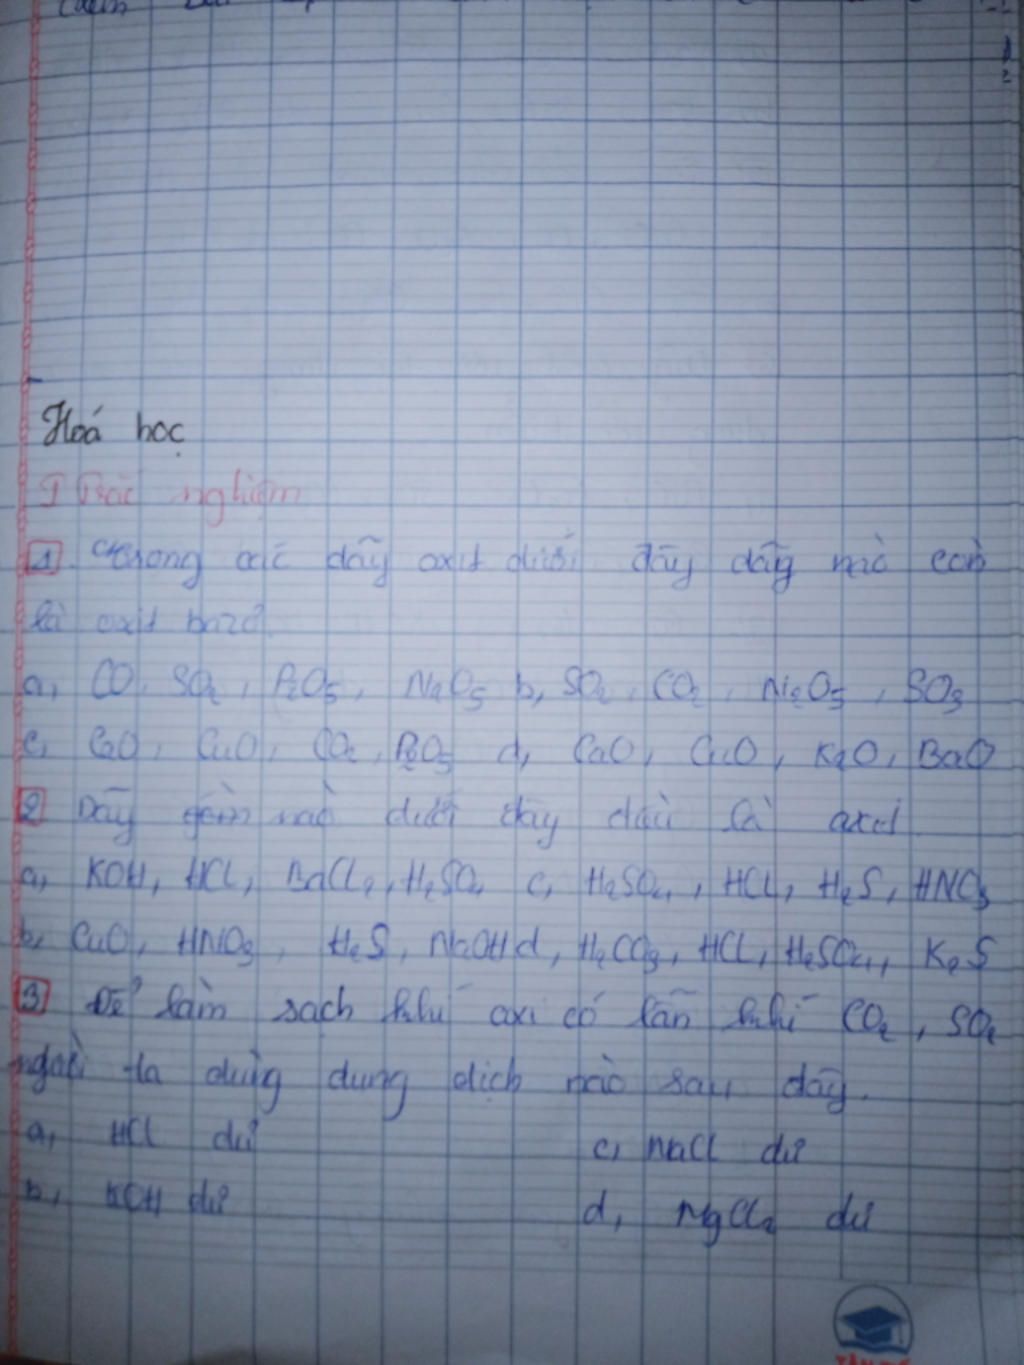 Hoá học
I Trắc nghiệm
1 Trong các dãy oxit dưới đây dãy nào còn
là oxit bazơ
a, CO, SO2, P2O5, N2O5 b, SO2, CO2, N2O5, SO3
c, CaO, CuO, CO2, P2O5 d, CaO, CuO, K2O, BaO
2 Dãy gồm nào dưới đây đều là axit
a, KOH, HCl, BaCl2, H2SO4 c, H2SO4, HCl, H2S, HNO3
b, CuO, HNO3, H2S, NaOH d, H2CO3, HCl, H2SO4, K2S
3 Để làm sạch khí oxi có lẫn khí CO2, SO2
người ta dùng dung dịch nào sau đây.
a, HCl dư c, NaCl dư
b, KOH dư d, MgCl2 dư